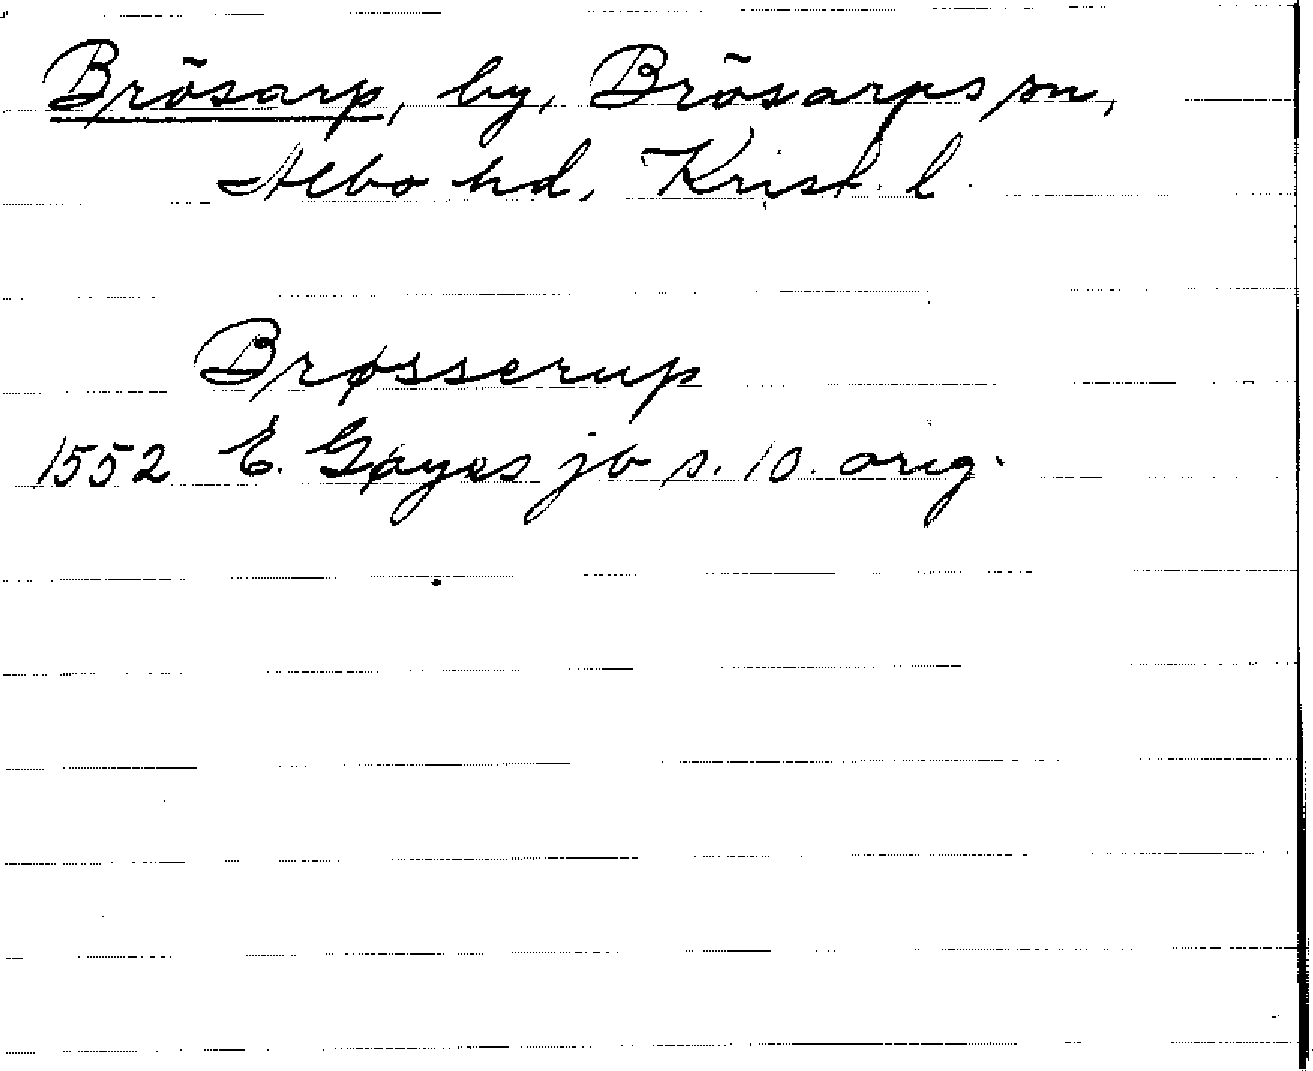 Brösarp, by, Brösarps sn,
Albo hd, Krist. l.
Brøsserup
1552 E. Gøyes jb s. 10. orig.